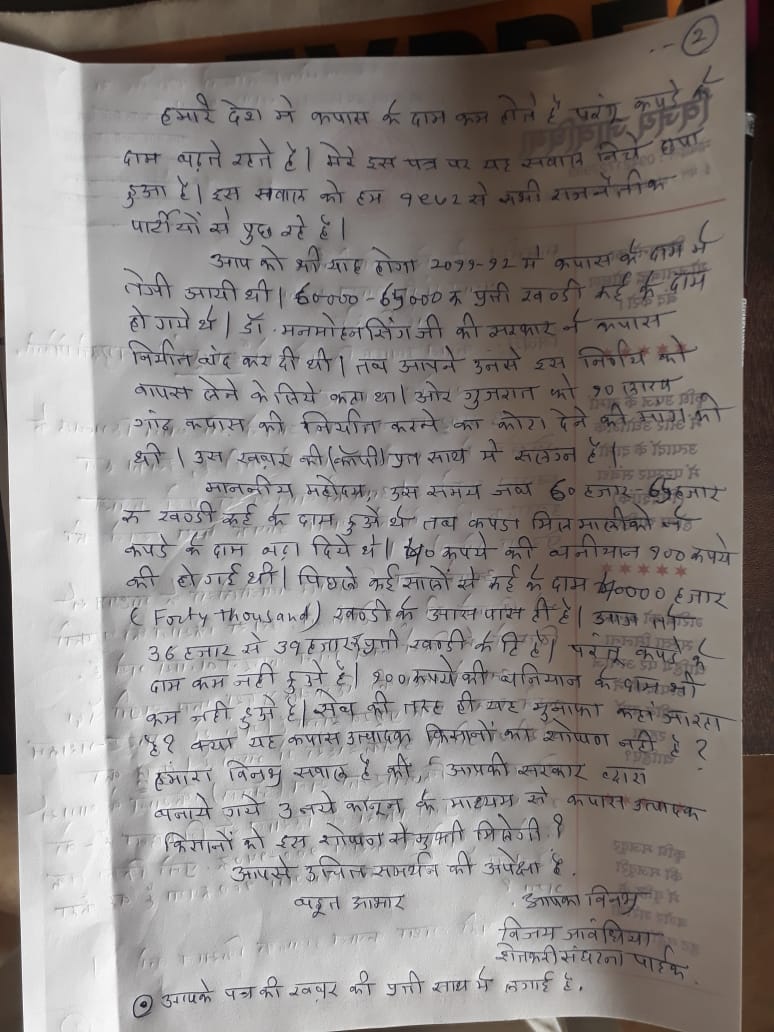 (2)
हमारे देश मे कपास के दाम कम होते है परंतु कपडे के
दाम बढ़ते रहते है। मेरे इस पत्र पर यह सवाल निचे छपा
हुआ है। इस सवाल को हम १९८२ से सभी राजनैतीक
पार्टीयों से पुछ रहे है।
आप को भी याद होगा २०११-१२ मे कपास के दाम मे
तेजी आयी थी। 60000-65000 रु प्रती खन्डी रुई के दाम
हो गये थे। डॉ. मनमोहनसिंग जी की सरकार ने कपास
निर्यात बंद कर दी थी। तब आपने उनसे इस निर्णय को
वापस लेने के लिये कहा था। और गुजरात को १० लाख
गांठ कपास की निर्यात करने का कोटा देने की मांग की
थी। उस खबर की (कॉपी) प्रत साथ मे सलग्न है।
माननीय महोदय, उस समय जब 60 हजार 65 हजार
रु खन्डी रुई के दाम हुअे थे तब कपडा मिल मालीको ने
कपडे के दाम बढा दिये थे। रुपये की बनीयान १०० रुपये
की हो गई थी। पिछले कई सालों से रुई के दाम 40000 हजार
(Forty thousand) खन्डी के आस पास ही है। आज भी
36 हजार से 39 हजार रु प्रती खन्डी के हि है। परंतु कपडे के
दाम कम नही हुअे है। १०० रुपये की बनियान के दाम भी
कम नही हुअे है। सेब की तरह ही यह मुनाफा कहां जा रहा
है? क्या यह कपास उत्पादक किसानों का शोषण नही है?
हमारा विनम्र सवाल है की, आपकी सरकार द्वारा
बनाये गये 3 नये कानून के माध्यम से कपास उत्पादक
किसानों को इस शोषण से मुक्ती मिलेगी?
आपसे उचित समर्थन की अपेक्षा है.
बहुत आभार
आपका विनम्र
विजय जावंधिया
शेतकरी संघटना पाईक.
⊙ आपके पत्र की खबर की प्रती साथ मे लगाई है.